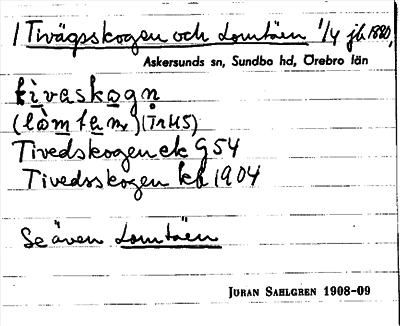 / Tivägsskogen och Lomtäen 1/4 jb 1880,
Askersunds sn, Sundbo hd, Örebro län
tivaskogn
(TrHS)
Tivedskogen ek G54
Tivedsskogen kb 1904
Se även Lomtäen
JURAN SAHLGREN 1908-09